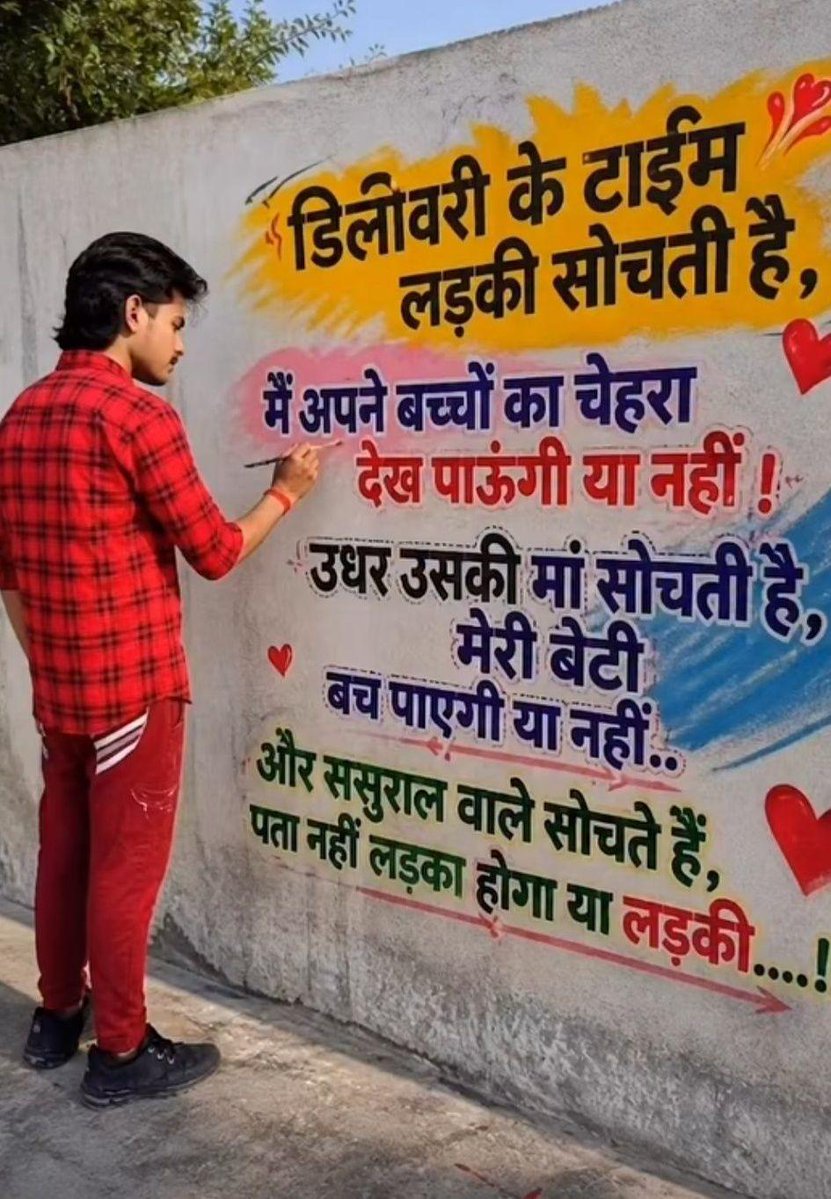 डिलीवरी के टाईम
लड़की सोचती है,
मैं अपने बच्चों का चेहरा
देख पाऊंगी या नहीं !
उधर उसकी मां सोचती है,
मेरी बेटी
बच पाएगी या नहीं..
और ससुराल वाले सोचते हैं,
पता नहीं लड़का होगा या लड़की....!